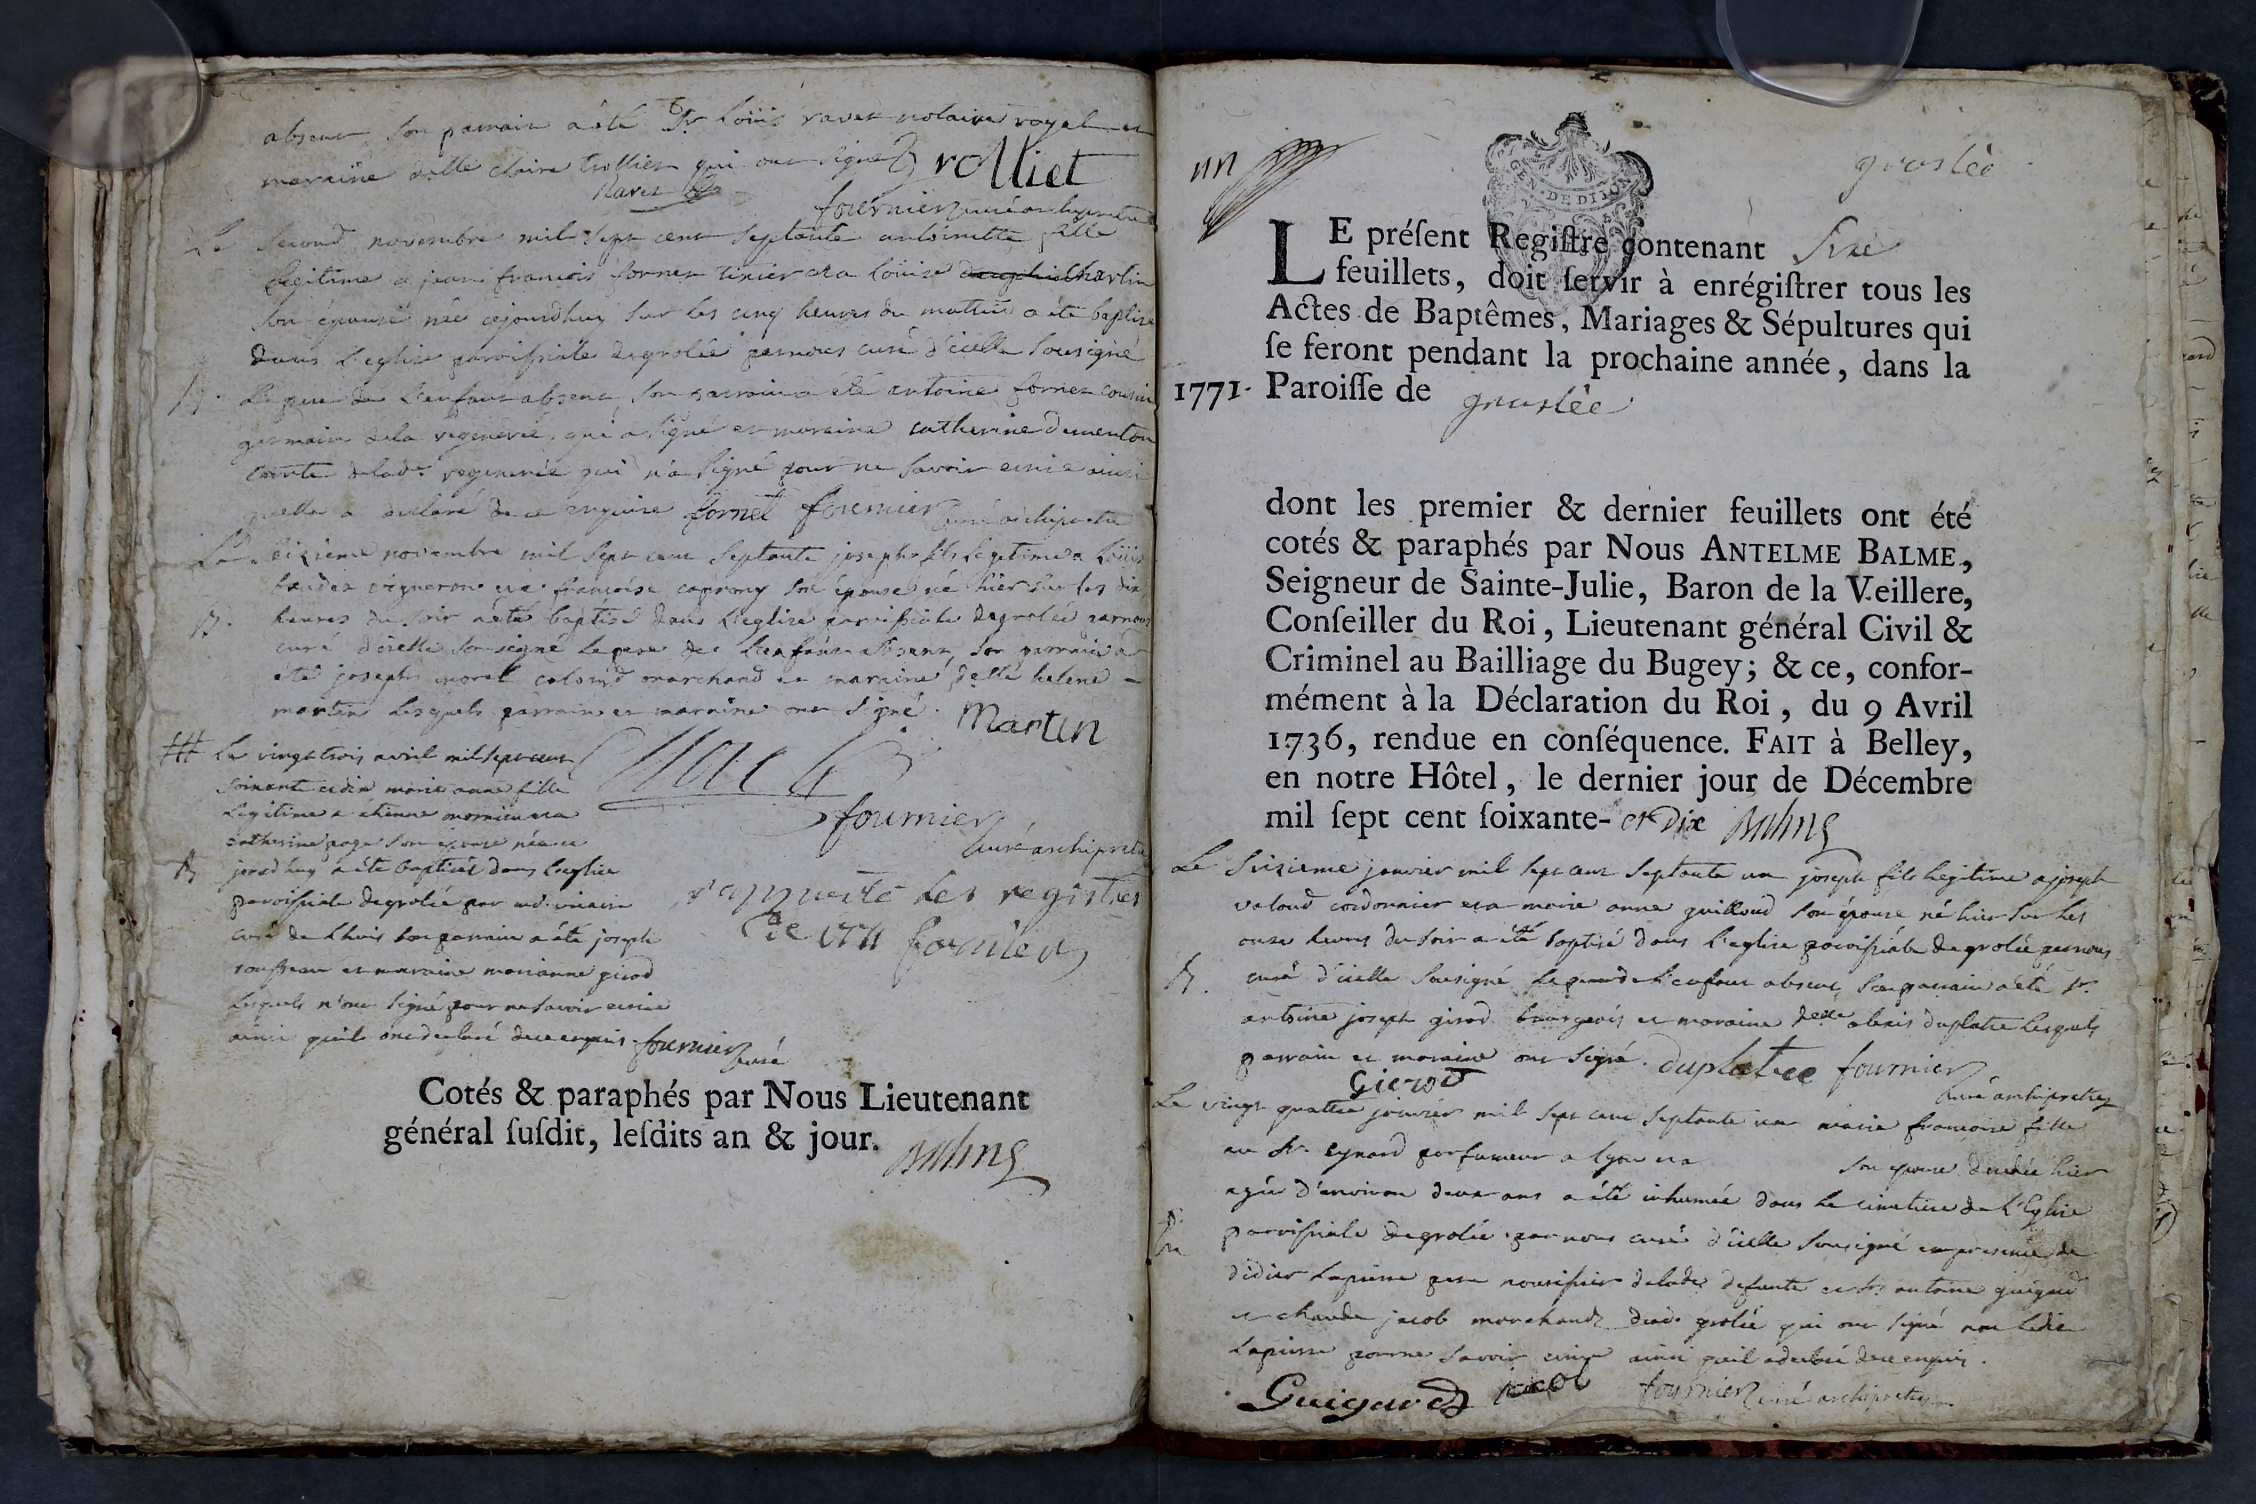 absent son parrain a été Sr Loüis ravet notaire royal et
maraine delle claire trollier qui ont signé trolliet
Ravet
fournier curé archipretre
Le second novembre mil sept cent septante antoinette fille
legitime a jean françois fornet et a Loüise Charlin
son épouse née cejourdhuy sur les cinq heures du mattin a été baptisé
dans l'eglise paroissiale de grolée par nous curé d'icelle sousigné
B. Le pere de l'enfant absent, son parrain a été antoine fornet cousin
germain de la regenerée, qui a signé et maraine catherine dementon
tante de lade regenerée qui n'a signé pour ne savoir ecrire ainsi
quelle a declaré de ce enquise fornet fournier curé archipretre
Le seizieme novembre mil sept cent septante joseph fils legitime a Loüis
vigneron et a françoise son épouse né hier sur les dix
B. heures du soir a été baptisé dans l'eglise paroissiale de grolée par nous
curé d'icelle sousigné le pere de l'enfant absent, son parrain a
été joseph morel marchand et maraine delle helene
martin lesquels parrain et marraine ont signé. Martin
fournier
curé archipretre
# Le vingt trois avril mil sept cent
soixante et dix marie anne fille
legitime a étienne et a
catherine page son épouse née ce
B jourdhuy a été baptisée dans l'eglise
paroissiale de grolée par
curé de Lhuis son parrain a été joseph
rousseau et marraine marianne girod
lesquels n'ont signé pour ne savoir ecrire
ainsi quils ont declaré de ce enquis fournier curé
r'apporté les registres
de 1771 fournier
Cotés & paraphés par Nous Lieutenant
général ſuſdit, leſdits an & jour.
Balme
un
groslée
GEN. DE DIJON
LE préſent Regiſtre contenant Six
feuillets, doit ſervir à enrégiſtrer tous les
Actes de Baptêmes, Mariages & Sépultures qui
ſe feront pendant la prochaine année, dans la
1771. Paroiſſe de groslée
dont les premier & dernier feuillets ont été
cotés & paraphés par Nous ANTELME BALME,
Seigneur de Sainte-Julie, Baron de la Veillere,
Conſeiller du Roi, Lieutenant général Civil &
Criminel au Bailliage du Bugey; & ce, confor-
mément à la Déclaration du Roi, du 9 Avril
1736, rendue en conſéquence. FAIT à Belley,
en notre Hôtel, le dernier jour de Décembre
mil ſept cent ſoixante- et Dix Balme
Le sixieme janvier mil sept cent septante un joseph fils legitime a joseph
valoud cordonnier et a marie anne guilloud son épouse né hier sur les
onze heures du soir a été baptisé dans l'eglise paroissiale de grolée par nous
B. curé d'icelle sousigné le pere de l'enfant absent, son parrain a été Sr.
antoine joseph girod bourgeois et maraine delle alexis duplatre lesquels
parrain et maraine ont signé. duplatre fournier
Girod curé archipretre
Le vingt quatre janvier mil sept cent septante un marie françoise fille
au Sr. eynard parfumeur a lyon et a son épouse decedée hier
agée d'environ deux ans a été inhumée dans le cimetiere de l'Eglise
paroissiale de grolée par nous curé d'icelle sousigné en presence de
didier lapierre pere nourissier de lade defunte et Sr. antoine guigard
et claude jacob marchands dud. grolée qui ont signé non ledit
Lapierre pour ne savoir ecrire ainsi quil a declaré de ce enquis.
Guigard jacob fournier curé archipretre